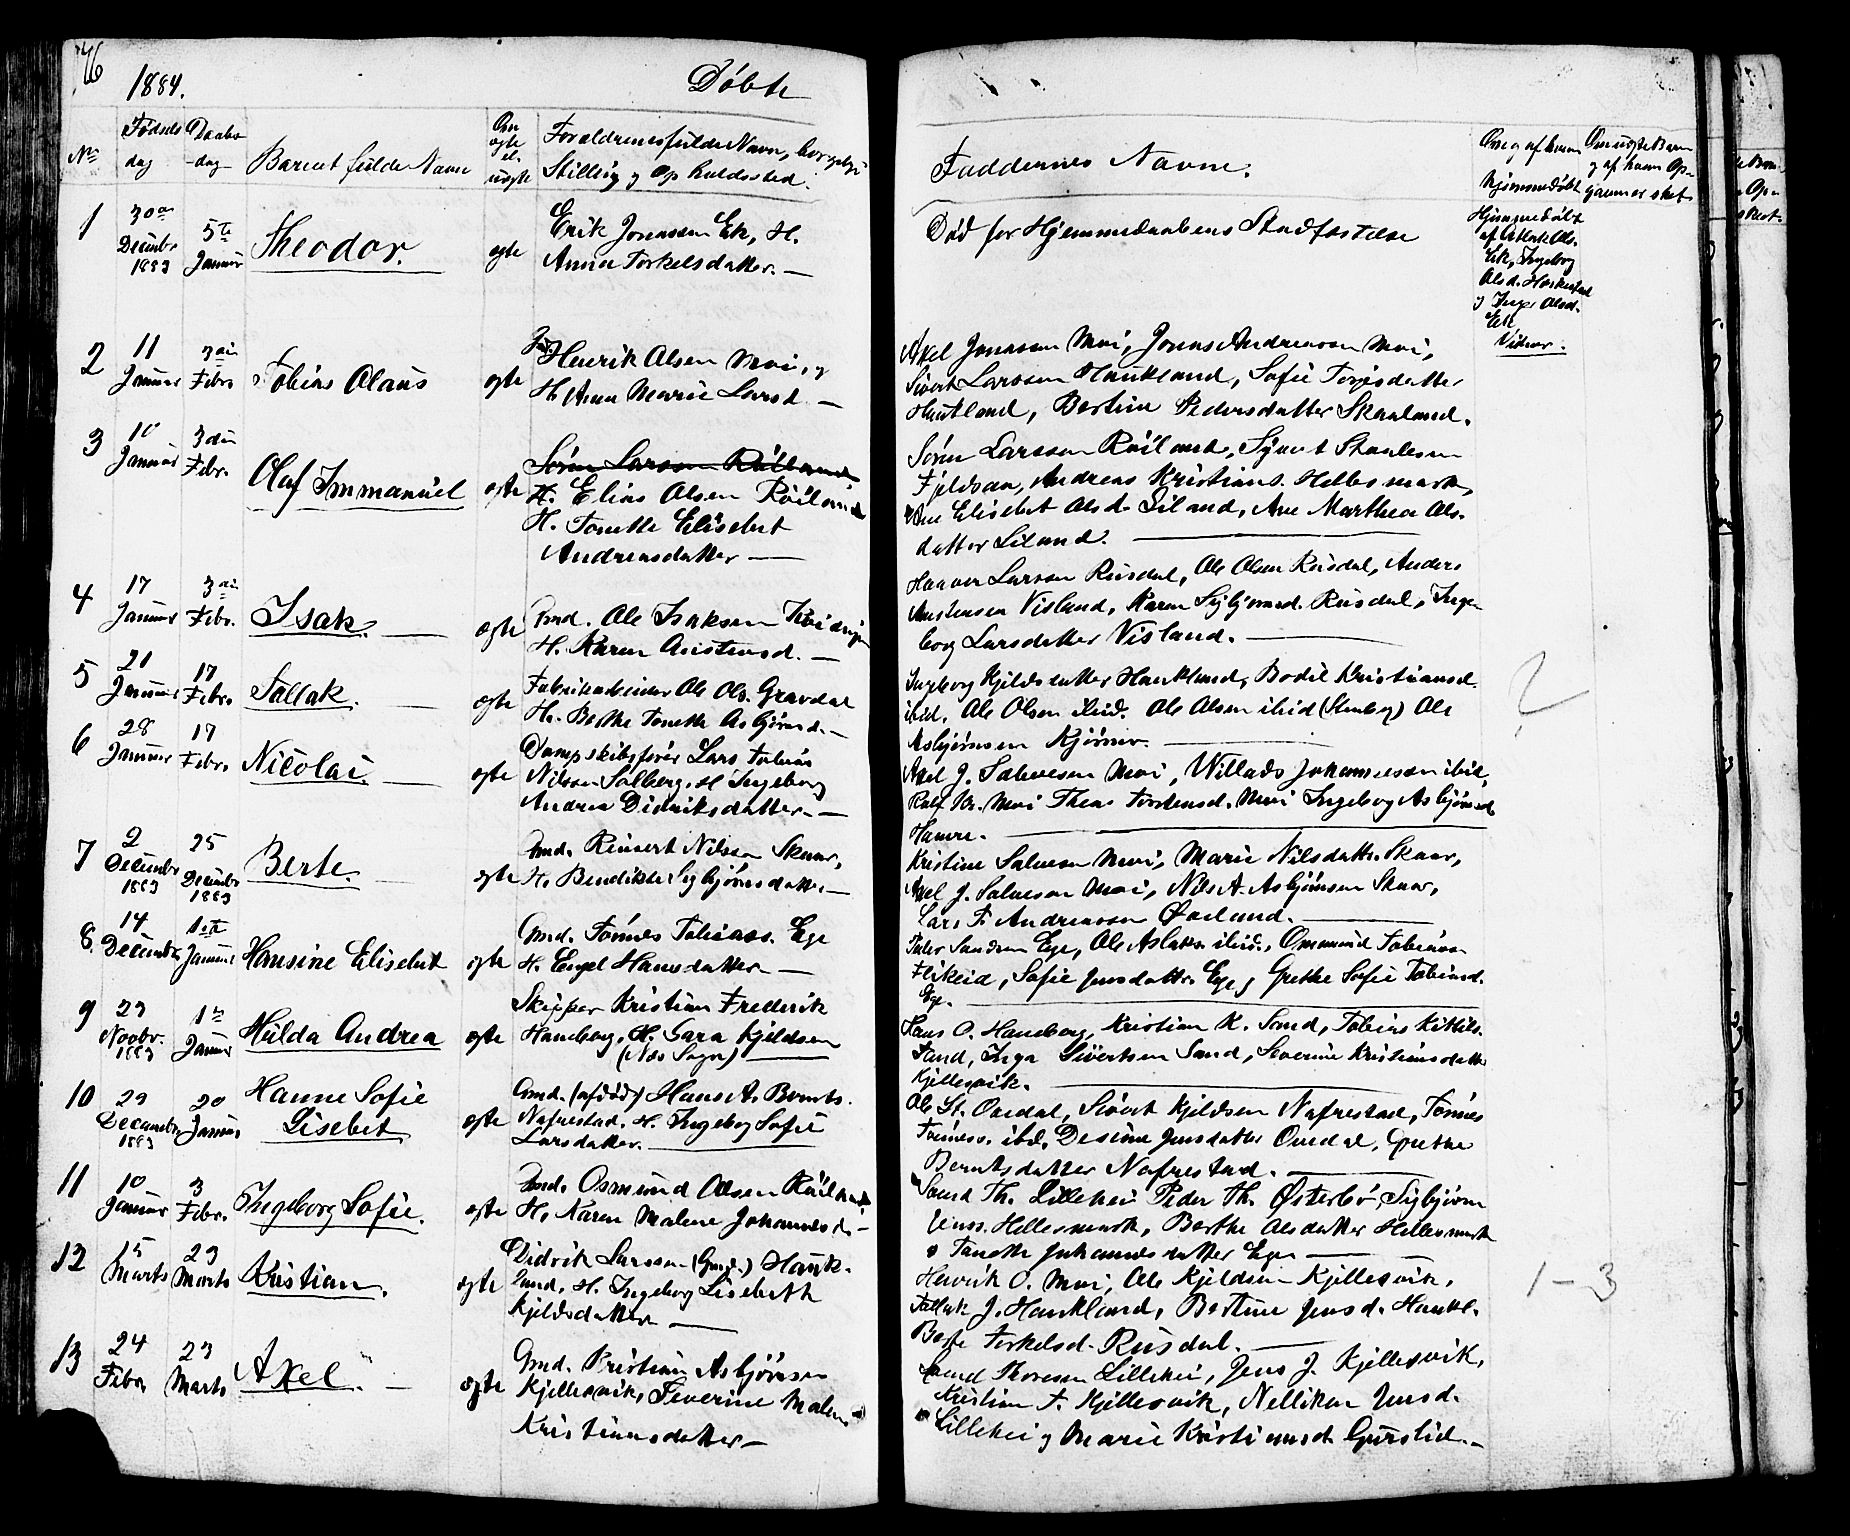 76
1884.
Døbte
No
Fødsels
dag
Daabs
-dag
Barnets fulde Navn
Om
ægte
el.
uægte
Forældrenes fulde Navn, borgelige
Stilling og Opholdssted.
Faddernes Navne.
Om og af hvem
hjemmedøbt
Om uægte Barn
og af hvem Op-
gaven er sket
1
30te
Decembr
1883
5te
Januar
Theodor.
ægte
Erik Jonassen Eik, H.
Anna Torkelsdatter. —
Død før Hjemmedaabens Stadfæstelse
Hjemmedøbt
af Aslak Ols.
Eik, Ingeborg
Olsd. Haskestad
og Inger Olsd.
Eik
Vidner.
2
11
Januar
3die
Febr
Tobias Olaus
ægte
Henrik Olsen Moi, og
H. Anna Marie Larsd. —
Axel Jonassen Moi, Jonas Andreassen Moi,
Sivert Larsson Haukland, Sofie Torjesdatter
Haukland, Bertine Pedersdatter Skaaland.
3
10
Januar
3die
Febr.
Olaf Immanuel
ægte
Søren Larsson Røiland
H. Elias Olsen Røiland
H. Tonette Elisebet
Andreasdatter —
Søren Larsson Røiland, Sivert Staalesen
Fjeldsaa, Andreas Kristians. Hellesmark,
Ane Elisebet Olsd. Liland, Ane Marthea Ols-
datter Liland. —
4
17
Januar
3die
Febr.
Isak. —
ægte
Gmd. Ole Isaksen
H. Karen Aanstensd. —
Haaver Larson Rusdal, Ole Olsen Rusdal, Anders
Aanstensen Visland, Karen Sigbjørnsd. Rusdal, Inge-
borg Larsdatter Visland. —
5
21
Januar
17
Febr.
Tallak.
ægte
Fabrikarbeider Ole Ols. Gravdal
H. Berthe Tonette Asbjørnsd. —
Ingeborg Kjeldsdatter Haukland, Bodil Kristiansd.
ibid, Ole Olsen ibid. Ole Olsen ibid (Stenberg) Ole
Asbjørnsen Kjørner. —
6
28
Januar
17
Febr.
Nicolai —
ægte
Dampskibsfører Lars Tobias
Nilssen Salberg, H. Ingeborg
Andrea Didriksdatter. —
Axel J. Salvesen Moi, Willads Johannessen ibid,
Rolf Kr. Moi Thea Tordensd. Moi Ingeborg Asbjørnsd
Hamre. —
7
2
Decembr
1883
25
Decembr
1883
Berte. —
ægte
Gmd. Reinert Nilsson Skaar,
H. Bendikte Sigbjørnsdatter —
Kristine Salvesen Moi, Marie Nilsdatter Skaar,
Axel J. Salvesen Moi, Nils A. Asbjørnsen Skaar,
Lars T. Andreassen Øveland. —
8.
14
Decembr
1ste
Januar
Hansine Elisebet
ægte
Gmd. Tønnes Tobiass. Ege
H. Engel Hansdatter —
Peder Ege, Ole Aslaks. ibid., Ommund Tobiass.
Flikeid, Sofie Jensdatter Ege, Grethe Sofie Tobiasd.
Ege. —
9
23
Novbr.
1883
1ste
Januar
Hilda Andrea
ægte
Skipper Kristian Frederik
Haneborg, H. Sara Kjeldsen
(Næs Sogn) —
Hans O. Haneborg, Kristian K. Sand, Tobias Kittils.
Sand, Inga Sivertsen Sand, Severine Kristiansdatter
Kjellesvik. —
10
29
Decembr
1883
20
Januar
Hanne Sofie
Lisebet
ægte
Gmd. (afdød) Hans A. Bernts.
Nafrestad. H. Ingeborg Sofie
Larsdatter. —
Ole St. Ovedal, Sivert Kjeldsen Nafrestad, Tønnes
Tønness. ibd, Desine Jensdatter Ovedal, Grethe
Berntsdatter Nafrestad. —
11
10
Januar
3
Febr.
Ingeborg Sofie.
ægte
Gmd. Osmund Olsen Røiland
H. Karen Malene Johannesd. —
Saund Th. Lilleheii Peder Th. Østerbø, Sigbjørn
Jenss. Hellesmark, Berthe Olsdatter Hellesmark
o Tonette Johannesdatter Ege —
12
15
Marts
23
Marts
Kristian.
ægte
Didrik Larsson (Gmd.) Hauk-
land, H. Ingeborg Lisebeth
Kjeldsdatter —
Henrik O. Moi, Ole Kjeldsen Kjellesvik,
Tallak J. Haukland, Bertine Jensd. Haukl.
Berte Torkelsd. Rusdal. —
1–3
13
24
Febr
23
Marts
Axel. —
ægte
Gmd. Kristian Asbjørnsen
Kjellesvik, Severine Malene
Kristiansdatter —
Saund Thoresen Lilleheii, Jens J. Kjellesvik,
Kristian T. Kjellesvik, Nellikan Jensd.
Lilleheii og Marie Kristiansd. Gurslid. —